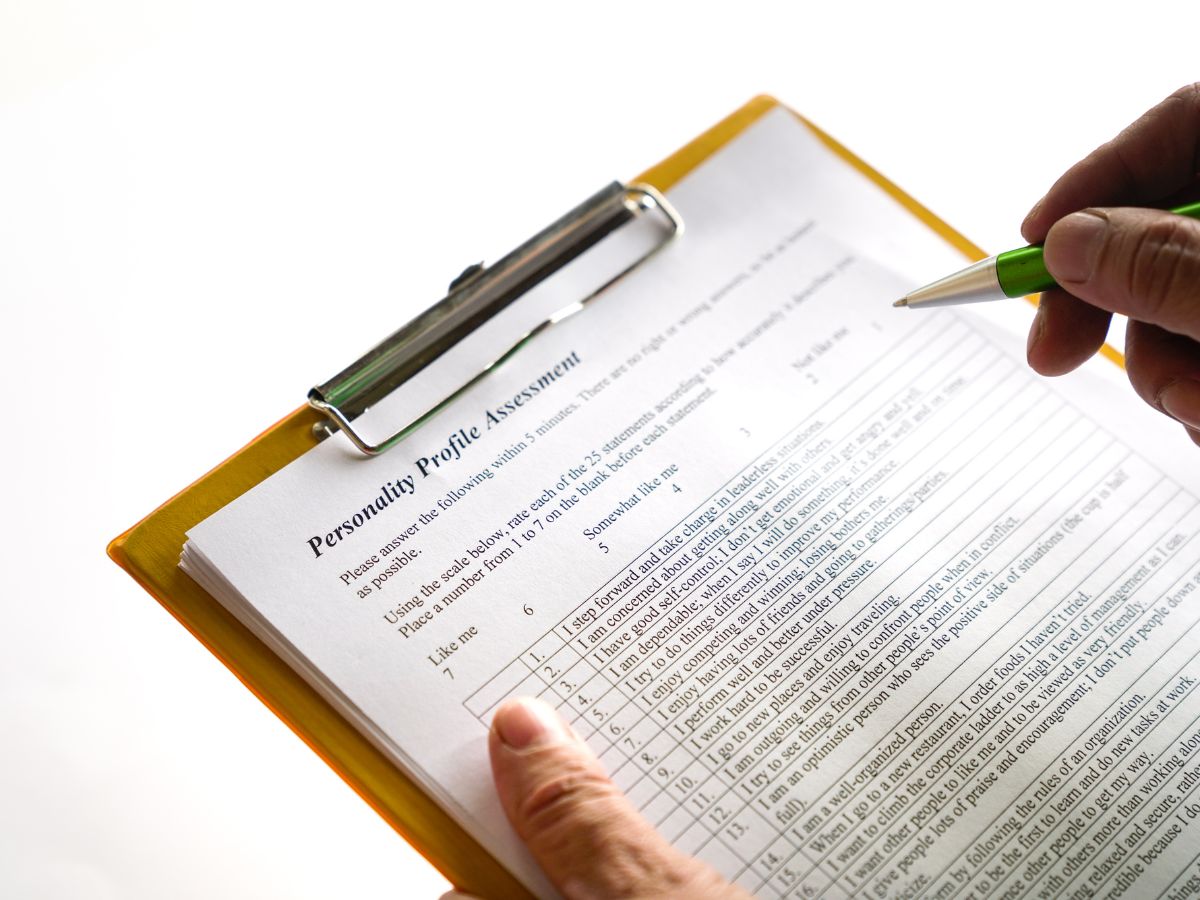 Personality Profile Assessment
Please answer the following within 5 minutes. There are no right or wrong answers, so be as honest
as possible.
Using the scale below, rate each of the 25 statements according to how accurately it describes you.
Place a number from 1 to 7 on the blank before each statement
Like me Somewhat like me Not like me
7 6 5 4 3 2 1
1. I step forward and take charge in leaderless situations.
2. I am concerned about getting along well with others.
3. I have good self-control; I don't get emotional and get angry and yell.
4. I am dependable; when I say I will do something, it's done well and on time.
5. I try to do things differently to improve my performance.
6. I enjoy competing and winning; losing bothers me.
7. I enjoy having lots of friends and going to gatherings/parties.
8. I perform well and better under pressure.
9. I work hard to be successful.
10. I go to new places and enjoy traveling.
11. I am outgoing and willing to confront people when in conflict.
12. I try to see things from other people's point of view.
13. I am an optimistic person who sees the positive side of situations (the cup is half
full).
14. I am a well-organized person.
15. When I go to a new restaurant, I order foods I haven't tried.
16. I want to climb the corporate ladder to as high a level of management as I can.
I want other people to like me and to be viewed as very friendly.
I give people lots of praise and encouragement; I don't put people down
form by following the rules of an organization.
to be the first to learn and do new tasks at work
other people to get my way.
with others more than working
relaxed and secure,
because I